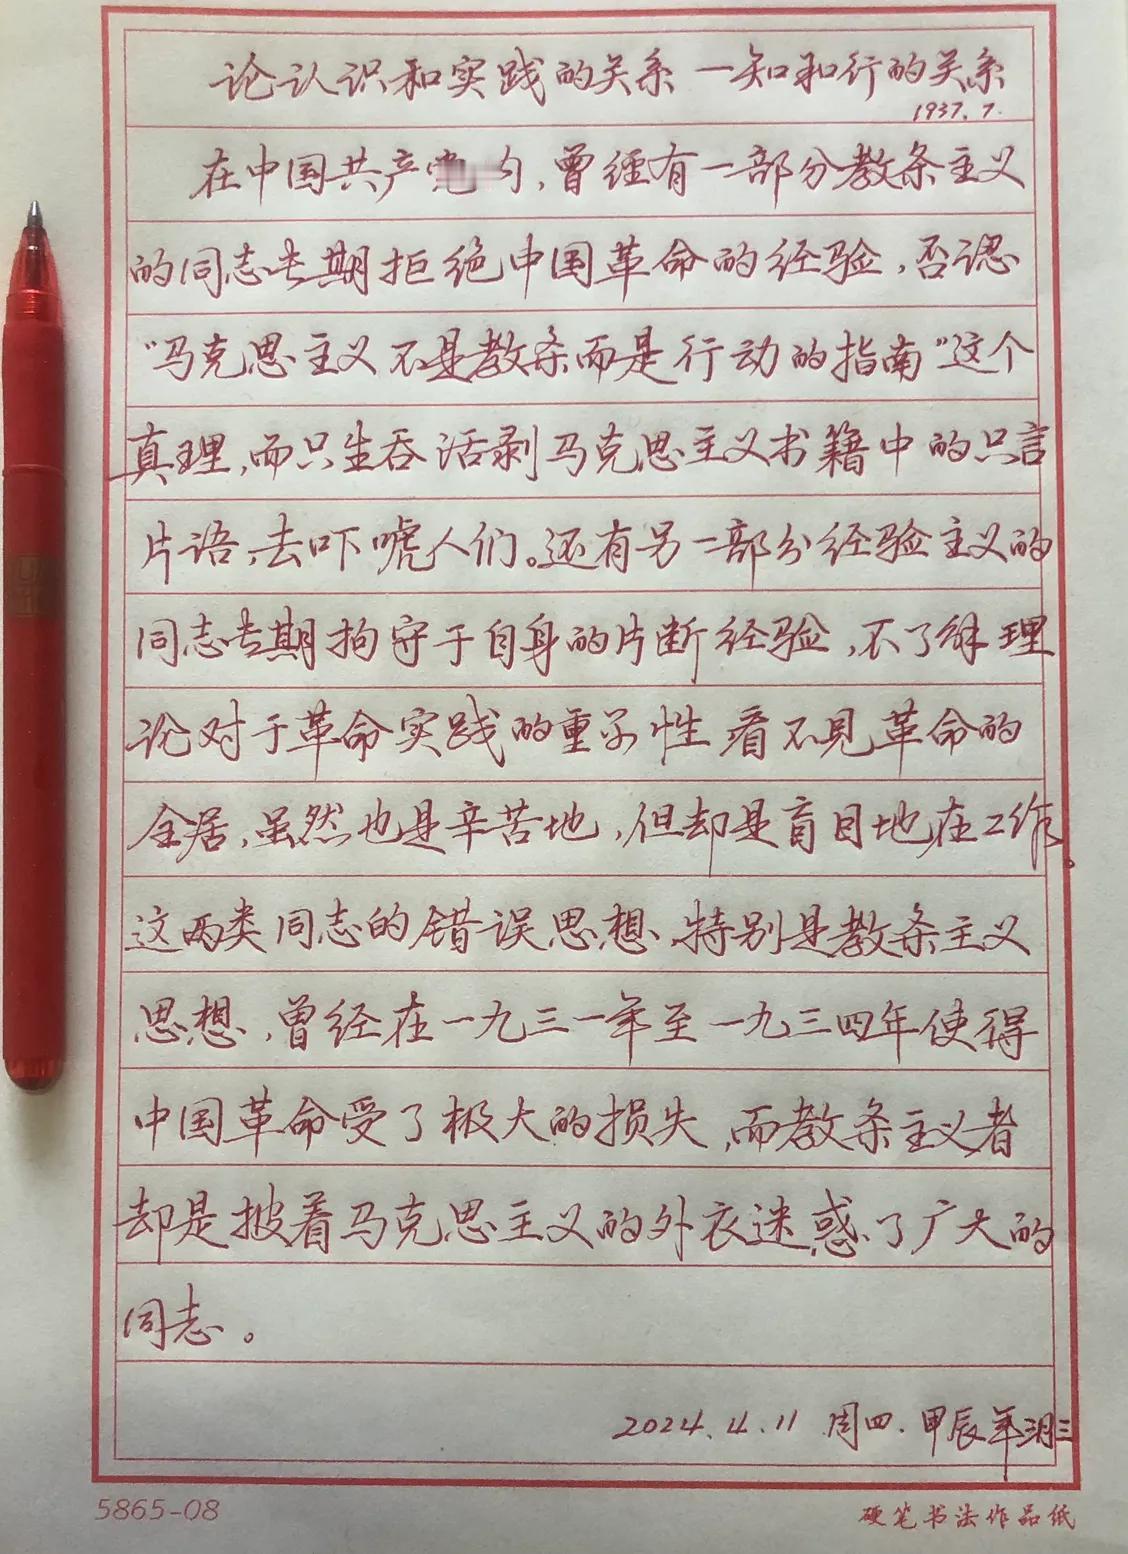 论认识和实践的关系一知和行的关系
1937.7.
在中国共产党内，曾经有一部分教条主义
的同志长期拒绝中国革命的经验，否认
“马克思主义不是教条而是行动的指南”这个
真理，而只生吞活剥马克思主义书籍中的只言
片语，去吓唬人们。还有另一部分经验主义的
同志长期拘守于自身的片断经验，不了解理
论对于革命实践的重要性 看不见革命的
全局，虽然也是辛苦地，但却是盲目地在工作。
这两类同志的错误思想，特别是教条主义
思想，曾经在一九三一年至一九三四年使得
中国革命受了极大的损失，而教条主义者
却是披着马克思主义的外衣迷惑了广大的
同志。
2024.4.11 周四.甲辰年三月三
5865-08
硬笔书法作品纸